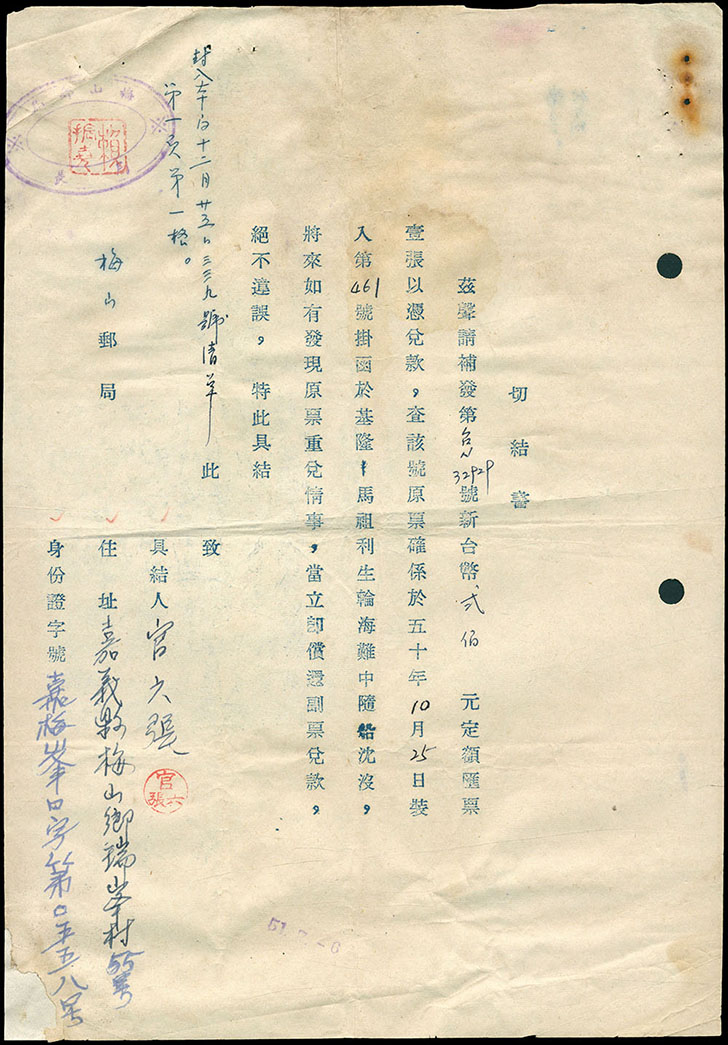 切結書
茲聲請補發第台N32929號新台幣弍佰 元定額匯票
壹張以憑兌款，查該號原票確係於五十年10月25日裝
入第461號掛函於基隆—馬祖利生輪海難中隨船沈沒，
將來如有發現原票重兌情事，當立即償還副票兌款，
絕不違誤， 特此具結
此
致
梅山郵局
第一頁第一格。
具結人 官六張
官六張
住址 嘉義縣梅山鄉瑞峯村55号
身份證字號 嘉梅峯口字第0五五八号